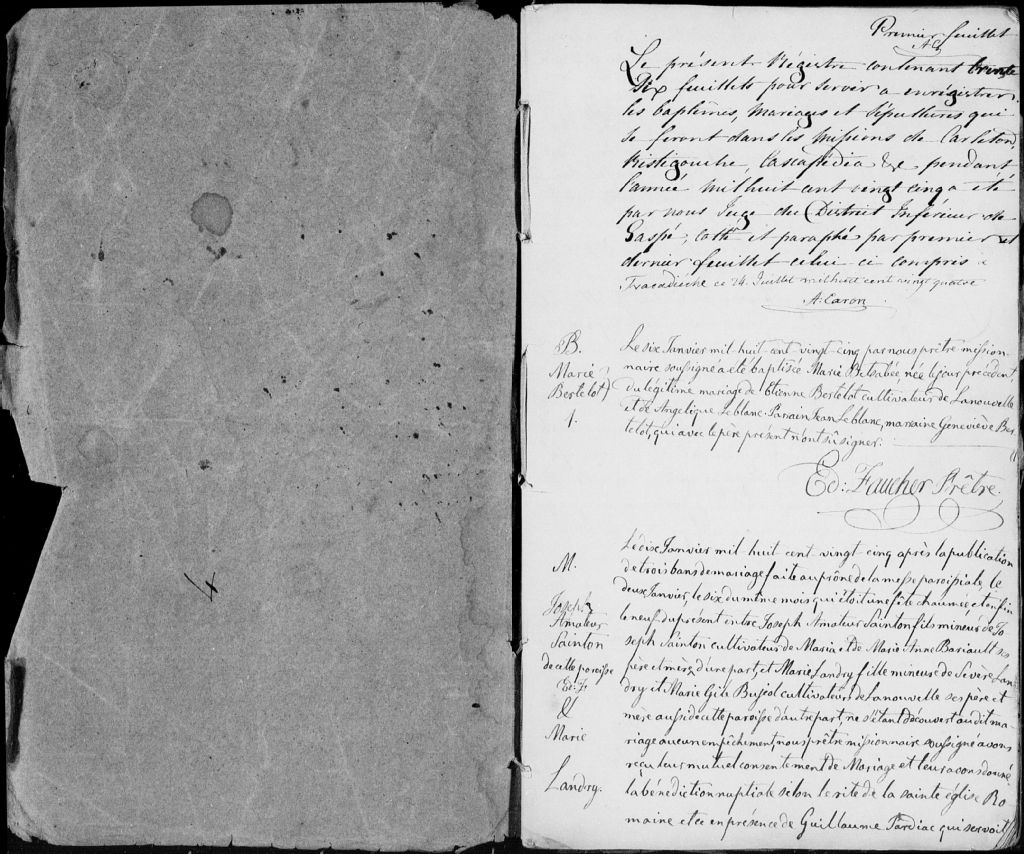 4
Premier feuillet
AC
Le présent Régistre contenant trente
Dix feuillets pour servir a enrégistrer
les baptêmes, mariages et Sépultures qui
se feront dans les Missions de Carleton,
Ristigouche, Cascapédia &c pendant
l'année mil huit cent vingt cinq a été
par nous Juge du District Inférieur de
Gaspé, Cotté et paraphé par premier et
dernier feuillet celui ci compris à
Tracadièche ce 24 Juillet mil huit cent vingt quatre
A. Caron
B.
Marie
Bertelot
1.
Le six Janvier mil-huit-cent-vingt-cinq par nous prêtre mission-
naire soussigné a été baptisée Marie Betsabée, née le jour précédent,
du légitime mariage de Etienne Bertelot cultivateur de Lanouvelle
et de Angelique Leblanc. Parrain Jean Leblanc, marraine Geneviève Ber-
telot, qui avec le père présent n'ont sû signer.
Ed: Faucher Prêtre.
M.
Joseph
Amateur
Sainton
de cette paroisse
Ed: F
&
Marie
Landry.
Le dix Janvier mil-huit-cent-vingt-cinq après la publication
de trois bans de mariage faite au prône de la messe paroissiale le
deux Janvier, le six du même mois qui étoit une fête chaumée, et enfin
le neuf du présent entre Joseph Amateur Sainton fils mineur de Jo-
seph Sainton cultivateur de Maria et de Marie Anne Bariault ses
père et mère d'une part, et Marie Landry fille mineure de Sévère Lan-
dry et Marie Gils Bujeol cultivateurs de Lanouvelle ses père et
mère aussi de cette paroisse d'autre part, ne s'étant découvert au dit ma-
riage aucun empêchement, nous prêtre missionnaire soussigné avons
reçu leur mutuel consentement de Mariage et leur avons donné
la bénédiction nuptiale selon le rite de la sainte église Ro
maine et ce en présence de Guillaume Pardiac qui servoit